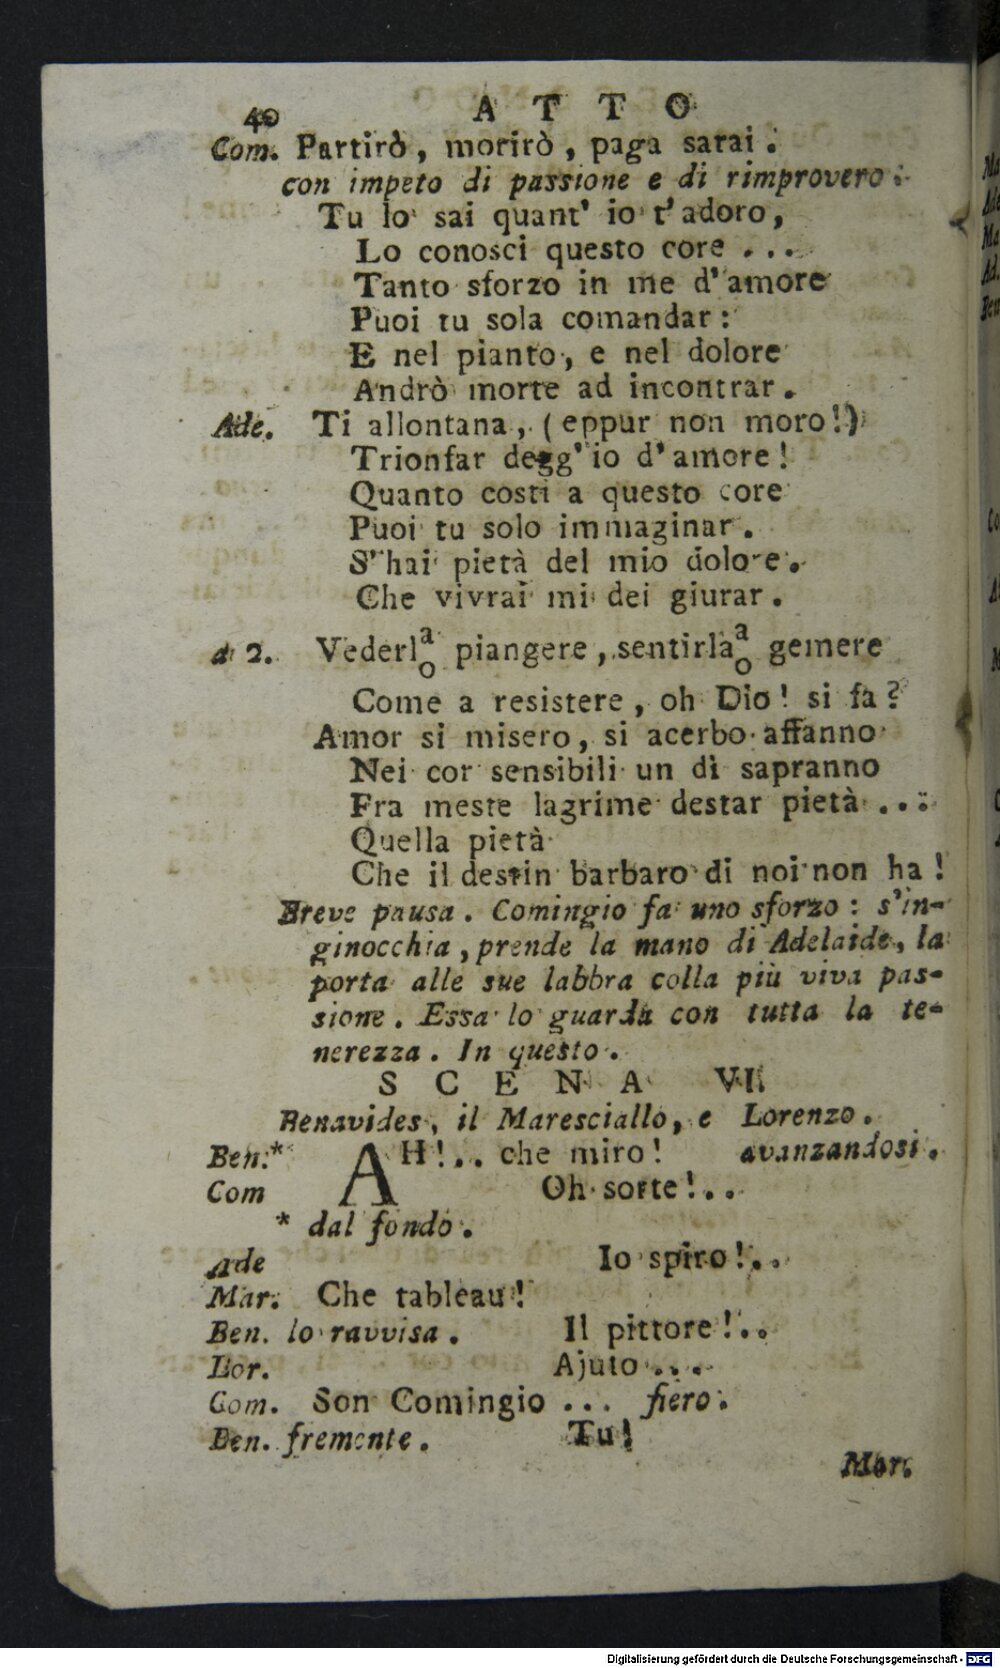 40 ATTO
Com. Partirò, morirò, paga sarai.
con impeto di passione e di rimprovero.
Tu lo sai quant' io t'adoro,
Lo conosci questo core ...
Tanto sforzo in me d'amore
Puoi tu sola comandar:
E nel pianto, e nel dolore
Andrò morte ad incontrar.
Ade. Ti allontana, (eppur non moro!)
Trionfar degg'io d'amore!
Quanto costi a questo core
Puoi tu solo immaginar.
S'hai pietà del mio dolore.
Che vivrai mi dei giurar.
a 2. Vederl a/o piangere, sentirla a/o gemere
Come a resistere, oh Dio! si fa?
Amor si misero, si acerbo affanno
Nei cor sensibili un dì sapranno
Fra meste lagrime destar pietà ...
Quella pietà
Che il destin barbaro di noi non ha!
Breve pausa. Comingio fa uno sforzo: s'in-
ginocchia, prende la mano di Adelaide, la
porta alle sue labbra colla più viva pas-
sione. Essa lo guarda con tutta la te-
nerezza. In questo.
SCENA VI.
Benavides, il Maresciallo, e Lorenzo.
Ben.* AH!.. che miro! avanzandosi.
Com Oh sorte!..
* dal fondo.
Ade Io spiro!..
Mar. Che tableau!
Ben. lo ravvisa. Il pittore!..
Lor. Ajuto ...
Com. Son Comingio ... fiero.
Ben. fremente. Tu!
Mar.
Digitalisierung gefördert durch die Deutsche Forschungsgemeinschaft - DFG